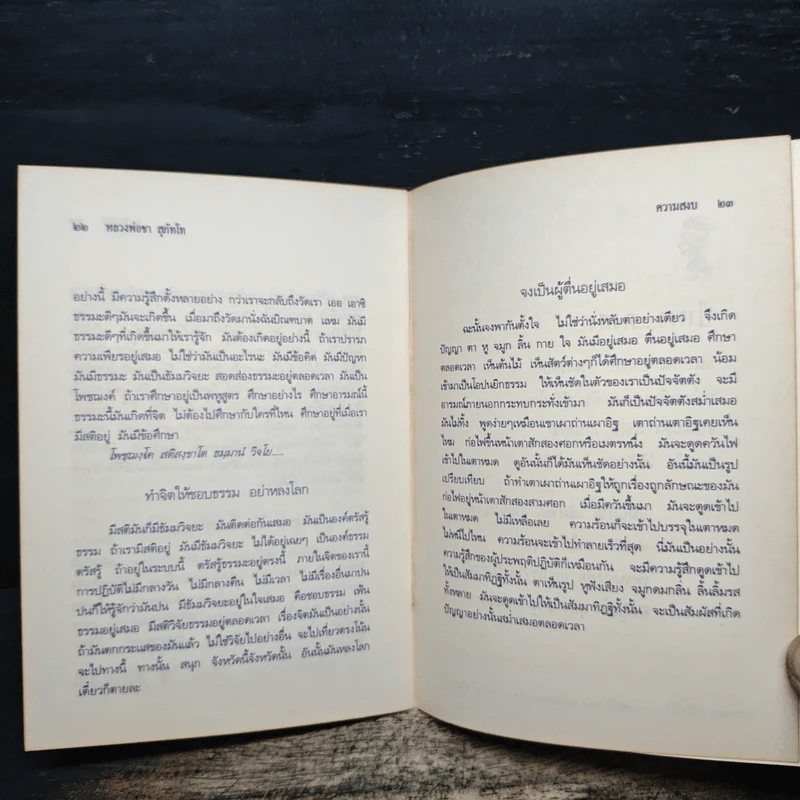 ๒๒ หลวงพ่อชา สุภัทโท
อย่างนี้ มีความรู้สึกตั้งหลายอย่าง กว่าเราจะกลับถึงวัดเรา เออ เอาซิ
ธรรมะดีๆมันจะเกิดขึ้น เมื่อมาถึงวัดมานั่งฉันบิณฑบาต แหม มันมี
ธรรมะดีๆที่เกิดขึ้นมาให้เรารู้จัก มันต้องเกิดอยู่อย่างนี้ ถ้าเราปรารภ
ความเพียรอยู่เสมอ ไม่ใช่ว่ามันเป็นอะไรนะ มันมีข้อคิด มันมีปัญหา
มันมีธรรมะ มันเป็นธัมมวิจยะ สอดส่องธรรมะอยู่ตลอดเวลา มันเป็น
โพชฌงค์ ถ้าเราศึกษาอยู่เป็นพหูสูตร ศึกษาอย่างไร ศึกษาอารมณ์นี้
ธรรมะนี้มันเกิดที่จิต ไม่ต้องไปศึกษากับใครที่ไหน ศึกษาอยู่ที่เมื่อเรา
มีสติอยู่ มันมีข้อศึกษา
โพชฺฌงฺโค สติสงฺขาโต ธมฺมานํ วิจโย.....
ทำจิตให้ชอบธรรม อย่าหลงโลก
มีสติมันก็มีธัมมวิจยะ มันติดต่อกันเสมอ มันเป็นองค์ตรัสรู้
ธรรม ถ้าเรามีสติอยู่ มันมีธัมมวิจยะ ไม่ได้อยู่เฉยๆ เป็นองค์ธรรม
ตรัสรู้ ถ้าอยู่ในระบบนี้ ตรัสรู้ธรรมะอยู่ตรงนี้ ภายในจิตของเรานี้
การปฏิบัติไม่มีกลางวัน ไม่มีกลางคืน ไม่มีเวลา ไม่มีเรื่องอื่นมาปน
ปนก็ให้รู้จักว่ามันปน มีธัมมวิจยะอยู่ในใจเสมอ คือชอบธรรม เฟ้น
ธรรมอยู่เสมอ มีสติวิจัยธรรมอยู่ตลอดเวลา เรื่องจิตมันเป็นอย่างนั้น
ถ้ามันตกกระแสของมันแล้ว ไม่ใช่วิจัยไปอย่างอื่น จะไปเที่ยวตรงโน้น
จะไปทางนี้ ทางนั้น สนุก จังหวัดนี้จังหวัดนั้น อันนั้นมันหลงโลก
เดี๋ยวก็ตายละ
ความสงบ ๒๓
จงเป็นผู้ตื่นอยู่เสมอ
ฉะนั้นจงพากันตั้งใจ ไม่ใช่ว่านั่งหลับตาอย่างเดียว จึงเกิด
ปัญญา ตา หู จมูก ลิ้น กาย ใจ มันมีอยู่เสมอ ตื่นอยู่เสมอ ศึกษา
ตลอดเวลา เห็นต้นไม้ เห็นสัตว์ต่างๆก็ได้ศึกษาอยู่ตลอดเวลา น้อม
เข้ามาเป็นโอปนยิกธรรม ให้เห็นชัดในตัวของเราเป็นปัจจัตตัง จะมี
อารมณ์ภายนอกกระทบกระทั่งเข้ามา มันก็เป็นปัจจัตตังสม่ำเสมอ
มันไม่ทิ้ง พูดง่ายๆเหมือนเขาเผาถ่านเผาอิฐ เตาถ่านเตาอิฐเคยเห็น
ไหม ก่อไฟขึ้นหน้าเตาสักสองศอกหรือเมตรหนึ่ง มันจะดูดควันไฟ
เข้าไปในเตาหมด ดูอันนั้นก็ได้มันเห็นชัดอย่างนั้น อันนี้มันเป็นรูป
เปรียบเทียบ ถ้าทำเตาเผาถ่านเผาอิฐให้ถูกเรื่องถูกลักษณะของมัน
ก่อไฟอยู่หน้าเตาสักสองสามศอก เมื่อมีควันขึ้นมา มันจะดูดเข้าไป
ในเตาหมด ไม่มีเหลือเลย ความร้อนก็จะเข้าไปบรรจุในเตาหมด
ไม่หนีไปไหน ความร้อนจะเข้าไปทำลายเร็วที่สุด นี่มันเป็นอย่างนั้น
ความรู้สึกของผู้ประพฤติปฏิบัติก็เหมือนกัน จะมีความรู้สึกดูดเข้าไป
ให้เป็นสัมมาทิฏฐิทั้งนั้น ตาเห็นรูป หูฟังเสียง จมูกดมกลิ่น ลิ้นลิ้มรส
ทั้งหลาย มันจะดูดเข้าไปให้เป็นสัมมาทิฏฐิทั้งนั้น จะเป็นสัมผัสที่เกิด
ปัญญาอย่างนั้นสม่ำเสมอตลอดเวลา